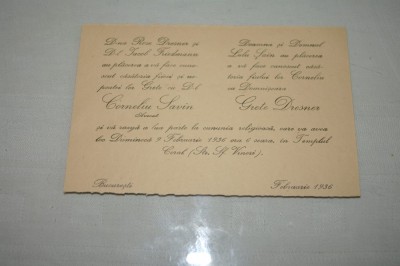 D-na Roza Dresner și
D-l Iacob Friedmann
au plăcerea a vă face cunos-
cut căsătoria fiicei și ne-
poatei lor Grete cu D-l
Corneliu Savin
Doamna și Domnul
au plăcerea
a vă face cunoscut căsă-
toria fiului lor Corneliu
cu Domnișoara
Grete Dresner
și vă roagă a lua parte la ceremonia religioasă, care va avea
loc Duminică 9 Februarie 1936 ora 6 seara, în Templul
Coral (Str. Sf. Vineri).
București
Februarie 1936